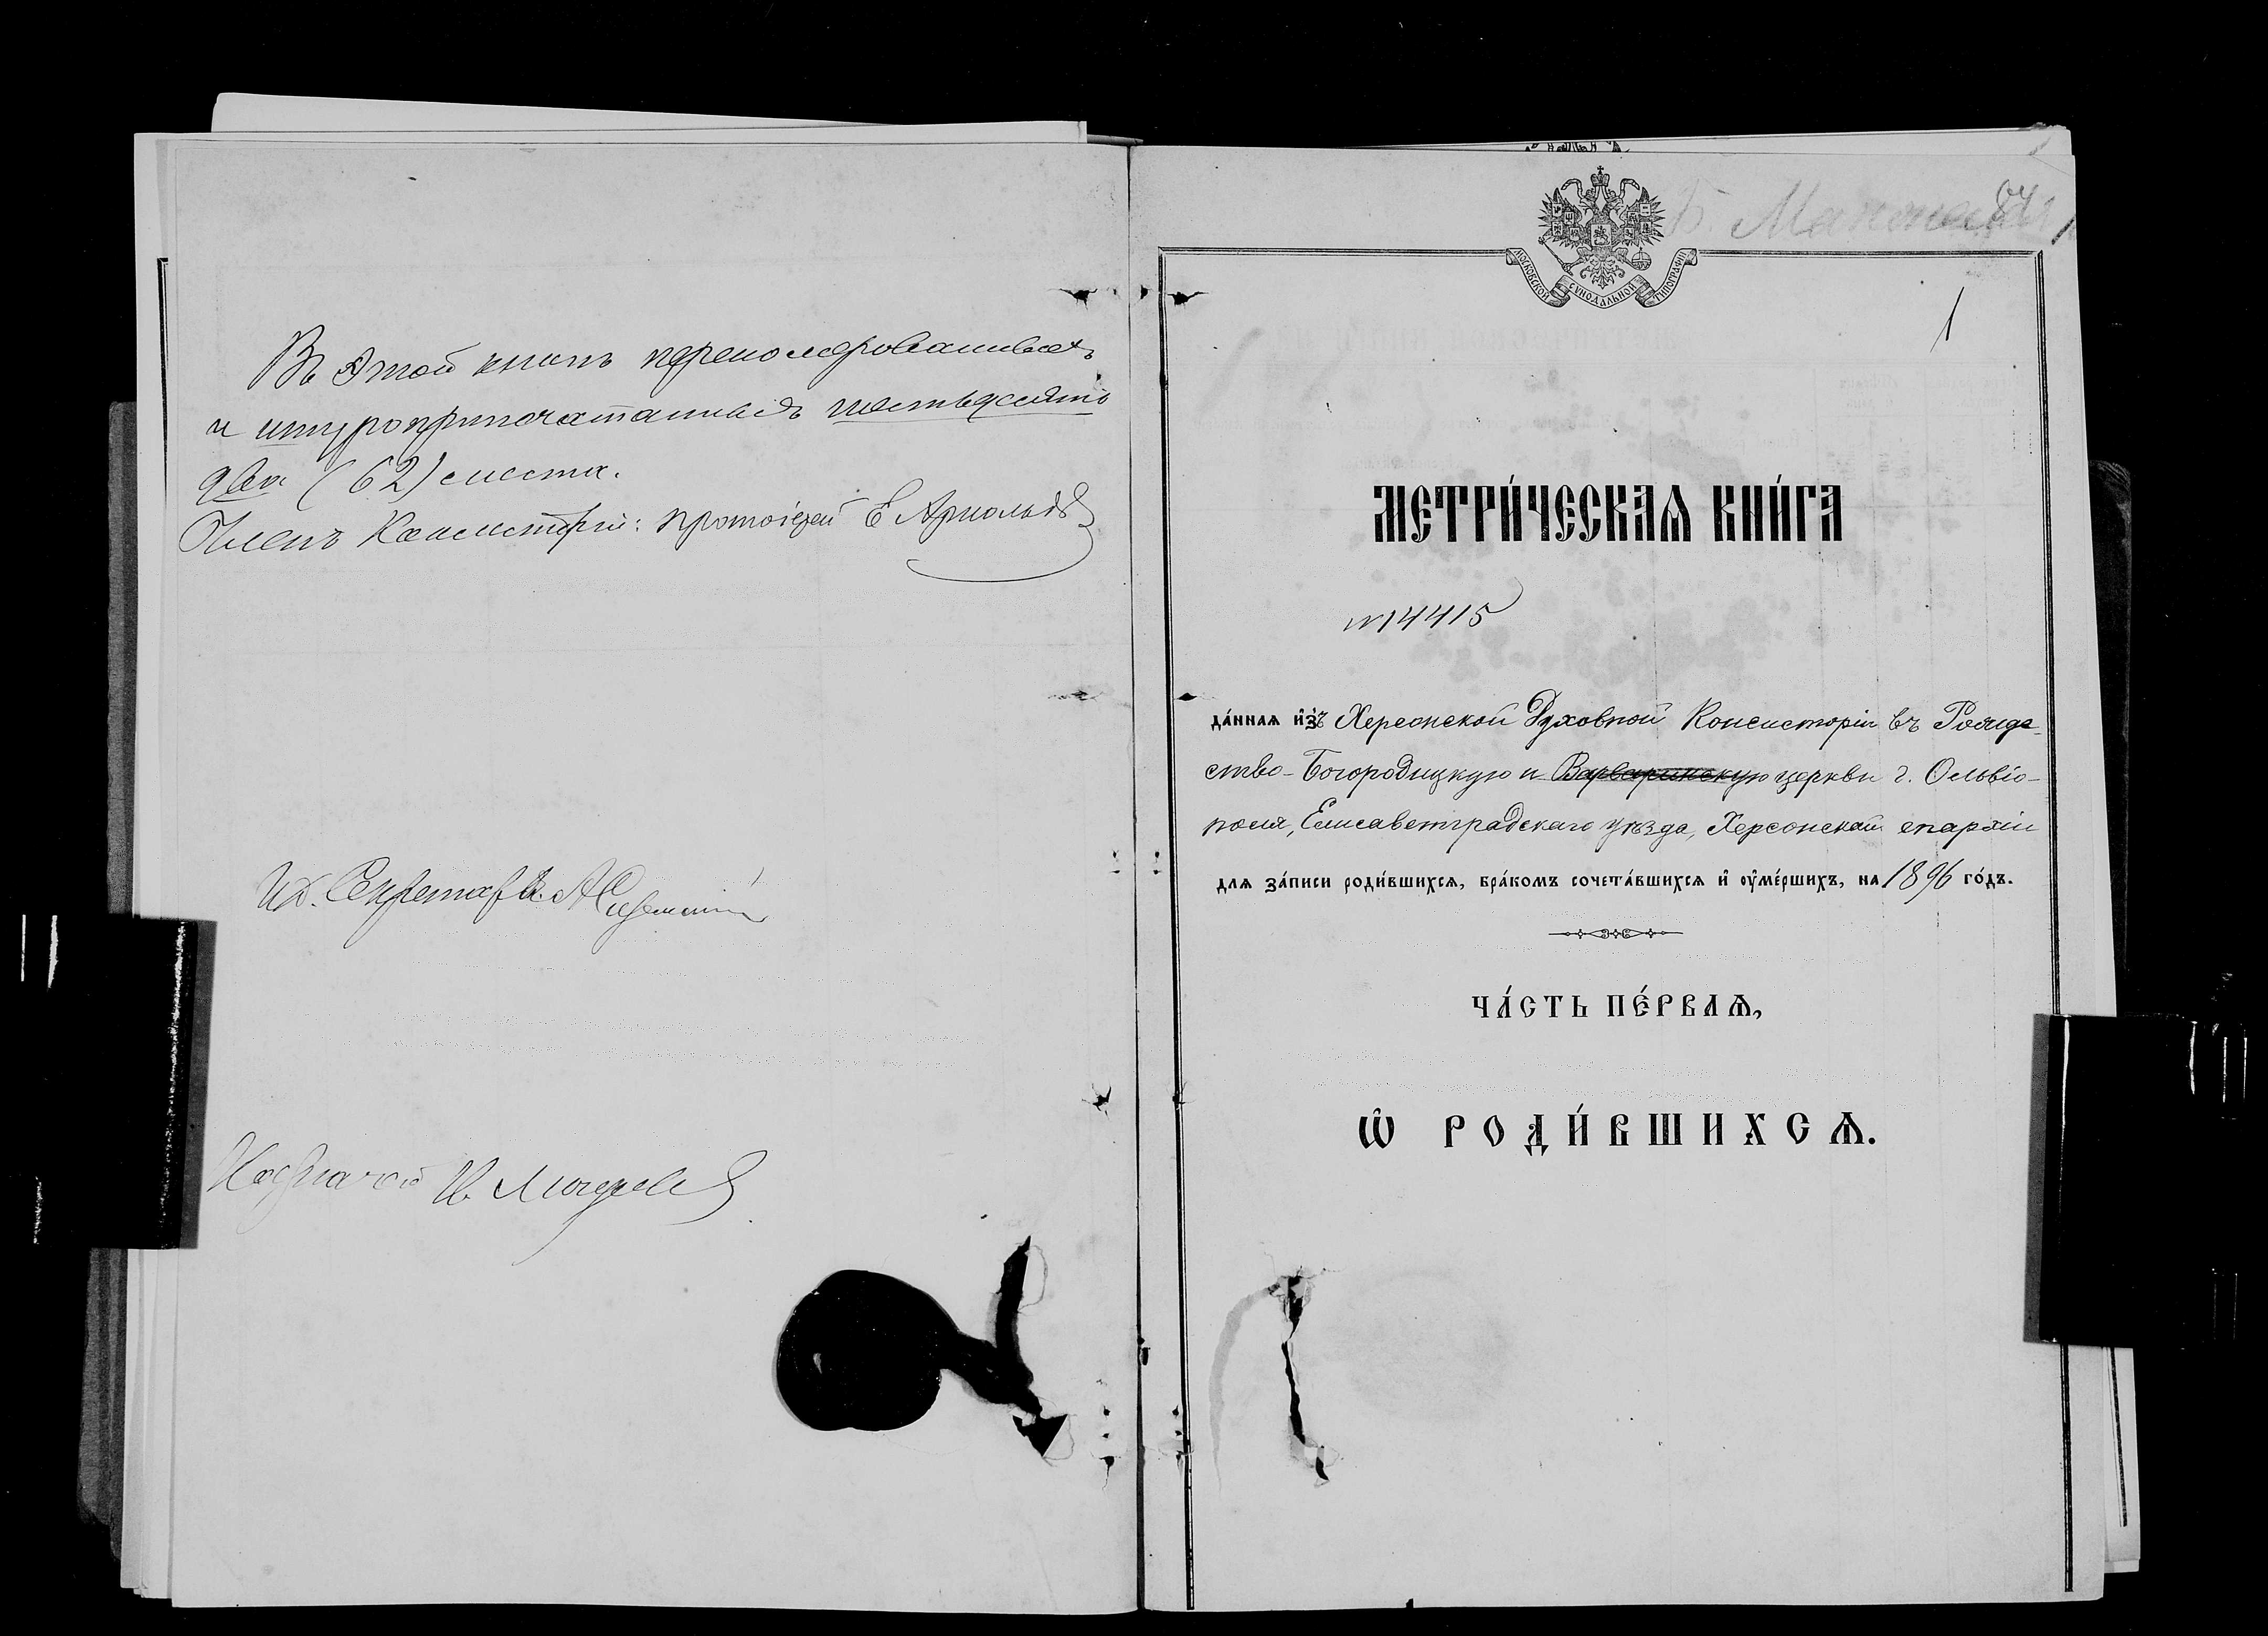 Въ этой книгѣ перенумерованныхъ
и шнуроприпечатанныхъ шестьдесятъ
два (62) листа.
Членъ Консисторіи: протоіерей Е Арнольдъ
И.д. Секретаря
Казначей И.
64
МОСКОВСКОЙ СУНОДАЛЬНОЙ ТИПОГРАФІИ
1
МЕТРИ́ЧЕСКАѦ КНИ́ГА
№14415
да́ннаѧ и҆зъ Херсонской Духовной Консисторіи въ Рожде-
ство-Богородицкую и Варваринскую церкви г. Ольвіо-
поля, Елисаветградскаго уѣзда, Херсонской епархіи
для за́писи роди́вшихсѧ, бра́комъ сочета́вшихсѧ и҆ ѹ҆ме́ршихъ, на 1896 го́дъ.
ЧА́СТЬ ПЕ́РВАѦ,
Ѽ РОДИ́ВШИХСѦ.